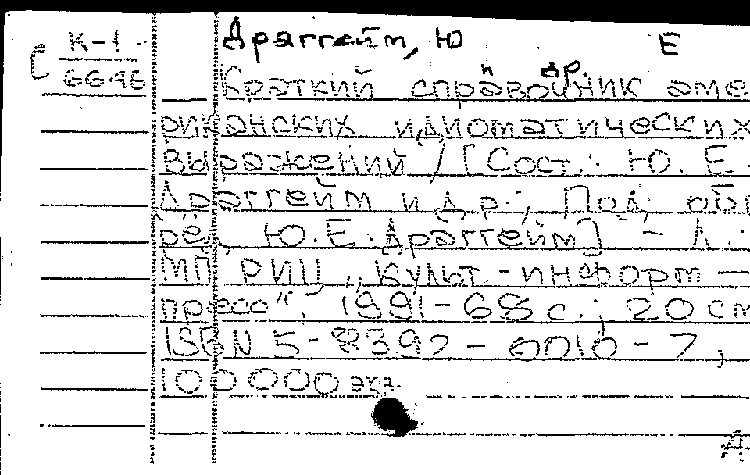 Драггейм, Ю Е
С К-1
6696
и др
Краткий справочник аме
риканских идиоматических
выражений / [Сост.: Ю. Е.
Драггейм и др.; Под общ
ред. Ю. Е. Драггейм] - Л.:
МП РИЦ "Культ-информ-
пресс", 1991-68 с.; 20 см
ISBN 5-8392-0010-7,
100000 экз.